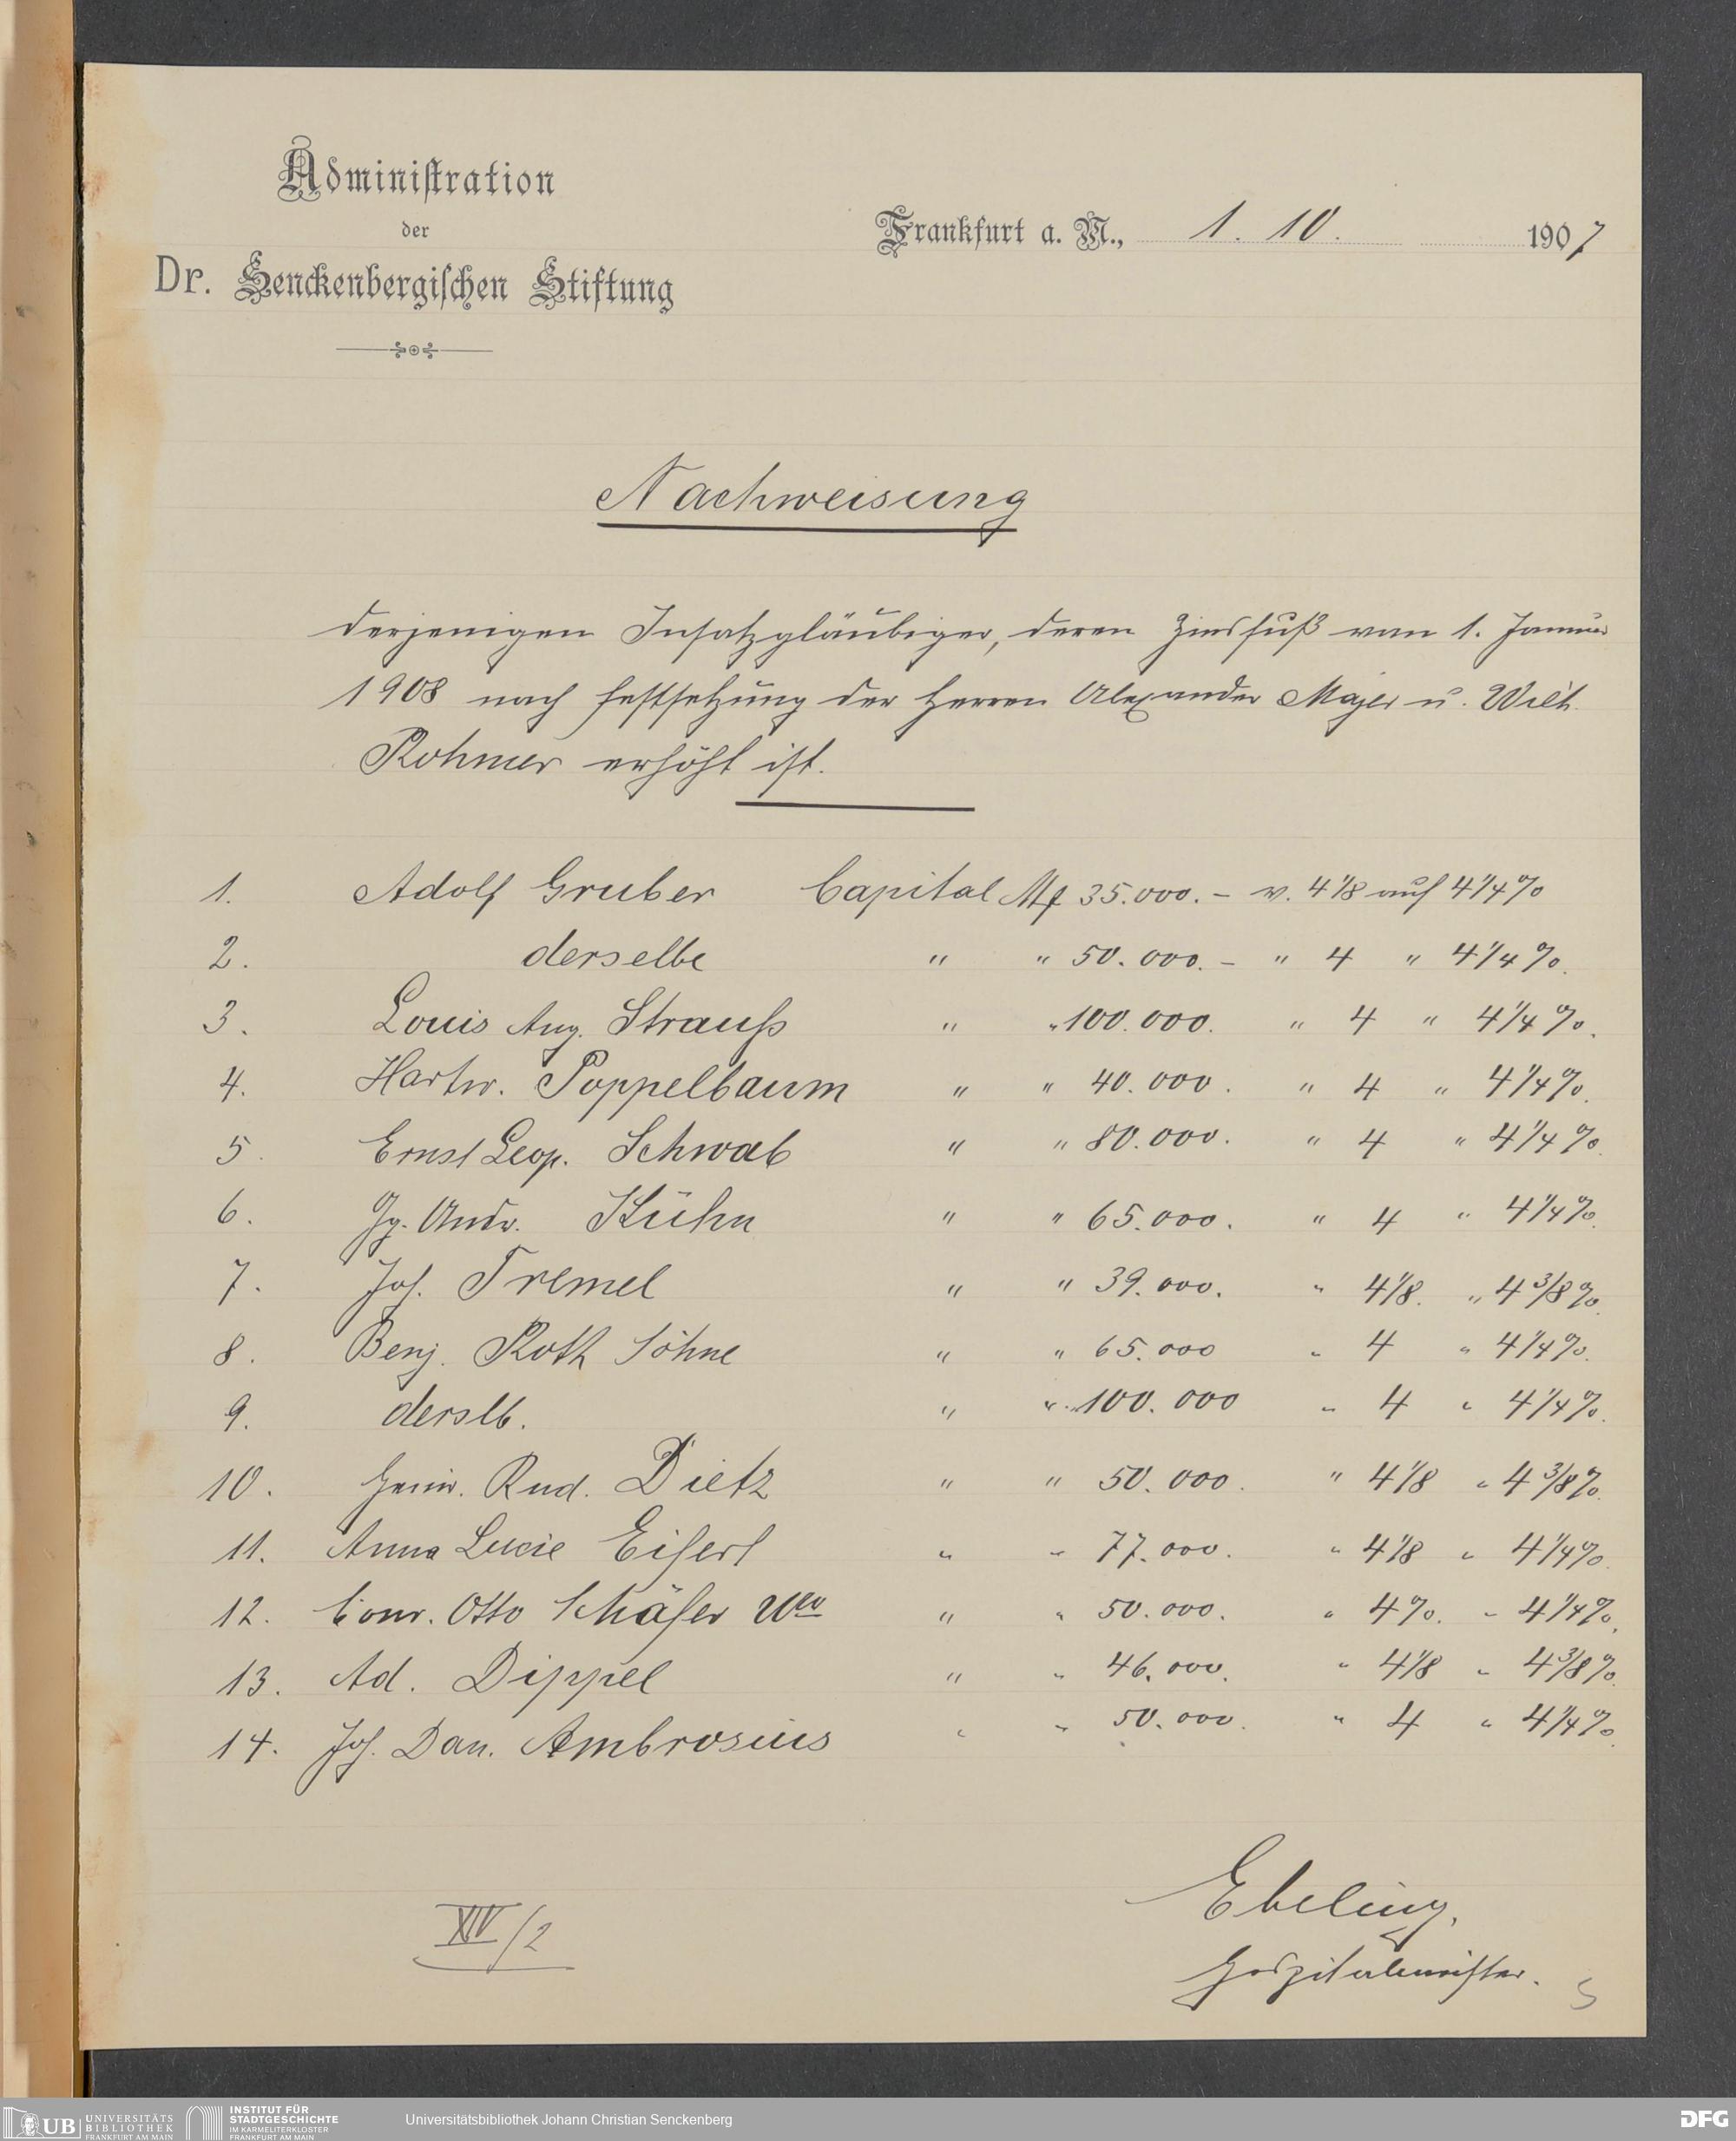 Administration
der
Dr. Senckenbergischen Stiftung
Frankfurt a. M., 1. 10. 1907
Nachweisung
derjenigen Insatzgläubiger, deren Zinsfuß vom 1. Januar
1908 nach Festsetzung der Herren Alexander Majer u. Wilh.
Rohmer erhöht ist.
1. Adolf Gruber Capital Mk 35.000.- v. 4 1/8 auf 4 1/4 %
2. derselbe " " 50.000.- " 4 " 4 1/4 %.
3. Louis Aug. Strauß " " 100.000. " 4 " 4 1/4 %.
4. Hartw. Poppelbaum " " 40.000. " 4 " 4 1/4 %.
5. Ernst Leop. Schwab " " 80.000. " 4 " 4 1/4 %.
6. Jg. Andr. Kühn " " 65.000. " 4 " 4 1/4 %.
7. Joh. Tremel " " 39.000. " 4 1/8. " 4 3/8 %.
8. Benj. Roth Söhne " " 65.000 " 4 " 4 1/4 %.
9. derslb. " " 100.000 " 4 " 4 1/4 %.
10. Heinr. Rud. Dietz " " 50.000. " 4 1/8 " 4 3/8 %.
11. Anna Lucie Eifert " " 77.000. " 4 1/8 " 4 1/4 %.
12. Conr. Otto Schäfer Wwe " " 50.000. " 4 %. " 4 1/4 %.
13. Ad. Dippel " " 46.000. " 4 1/8 " 4 3/8 %.
14. Joh. Dan. Ambrosius " " 50.000. " 4 " 4 1/4 %.
Ebeling.
Hospitalmeister.
XIV/2
5
UB UNIVERSITÄTS
BIBLIOTHEK
FRANKFURT AM MAIN
INSTITUT FÜR
STADTGESCHICHTE
IM KARMELITERKLOSTER
FRANKFURT AM MAIN
Universitätsbibliothek Johann Christian Senckenberg
DFG